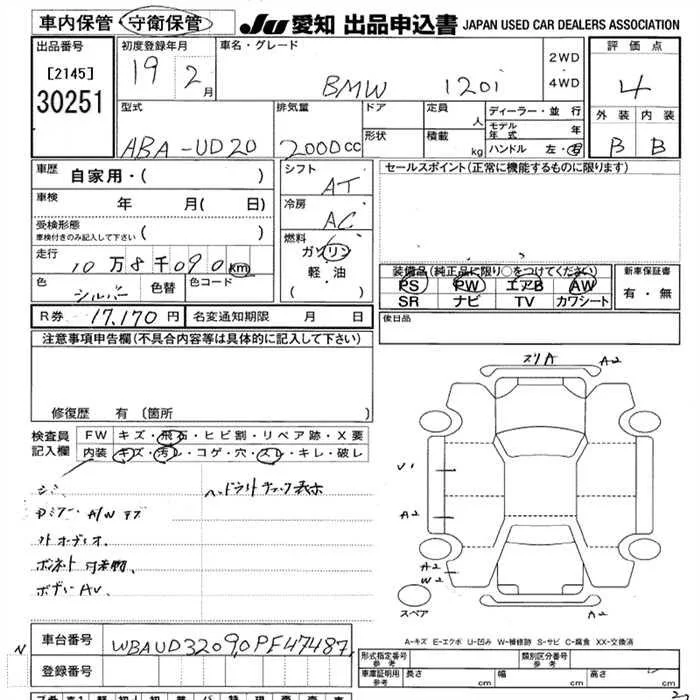 車内保管・守衛保管 JU 愛知 出品申込書 JAPAN USED CAR DEALERS ASSOCIATION
出品番号 初度登録年月 車名・グレード 2WD 評価点
[2145] 19 2月 BMW 120i ・ 4
30251 4WD
型式 排気量 ドア 定員 人 ディーラー・並行 外装 内装
ABA-UD20 2000cc 形状 積載 kg モデル年式 年 B B
ハンドル 左・右
車歴 自家用・( ) シフト AT セールスポイント(正常に機能するものに限ります)
車検 年 月( 日) 冷房 AC
受検形態
車検付きのみ記入して下さい ( ) 燃料
走行 10万8千090km ガソリン
軽・油
・( )
装備品(純正品に限り○をつけてください) 新車保証書
色 シルバー 色替 色コード PS PW エアB AW 有・無
SR ナビ TV カワシート
R券 17,170円 名変通知期限 月 日 後日品
注意事項申告欄(不具合内容等は具体的に記入して下さい)
スリA A2
修復歴 有 (箇所
検査員 FW キズ・飛石・ヒビ割・リペア跡・X要
記入欄 内装 キズ・汚レ・コゲ・穴・スレ・キレ・破レ
V1
シミ ヘッドライトチェック表示
A/W キズ A2
外オーディオ
ボンネット A2
W2
ボデー AV
スペア A2
車台番号 WBAUD32090PF47487
A-キズ E-エクボ U-凹み W-補修跡 S-サビ C-腐食 XX-交換済
登録番号 型式指定番号 参考 類別区分番号 参考
車庫証明用 参考 長さ cm 幅 cm 高さ cm
N